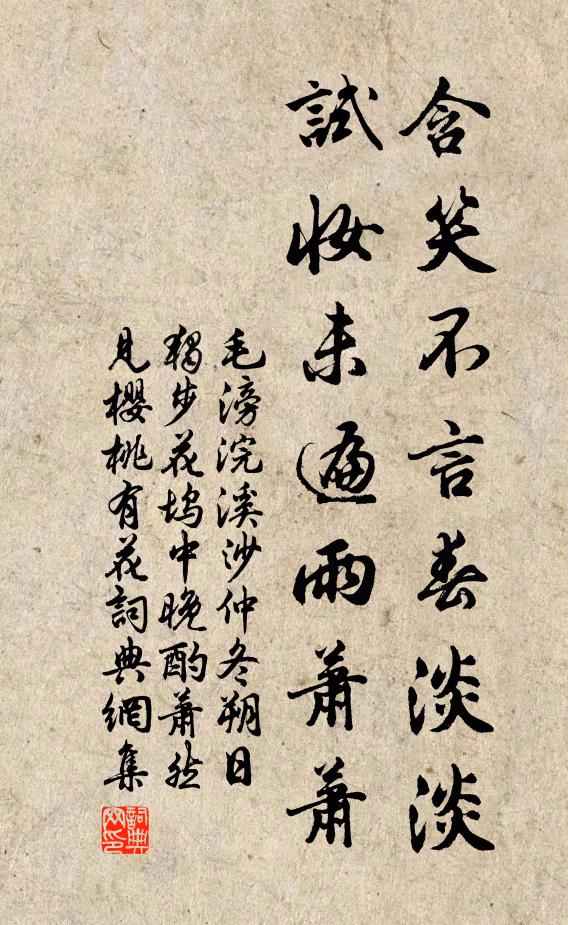 含笑不言春淡淡
試妝未遍雨蕭蕭
毛滂浣溪沙仲冬朔日
獨步花塢中晚酌蕭然
見櫻桃有花詞典網集
詞典
网印